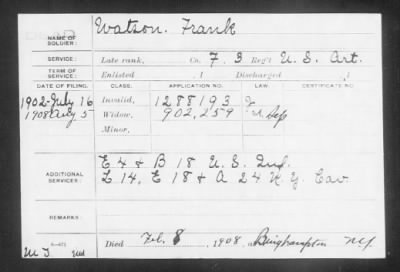 NAME OF SOLDIER: Watson, Frank
SERVICE: Late rank, Co. F. 3 Reg't U. S. Art.
TERM OF SERVICE: Enlisted , 1 Discharged , 1
DATE OF FILING. CLASS. APPLICATION NO. LAW. CERTIFICATE NO.
1902-July 16 Invalid, 1288193
1908 Aug 5 Widow, 902,259
Minor,
ADDITIONAL SERVICES: E 4 & B 18 U. S. Inf.
L 14, E 18 & A 24 N. Y. Cav
REMARKS:
Died Feb. 8, 1908, at Binghampton N.Y.